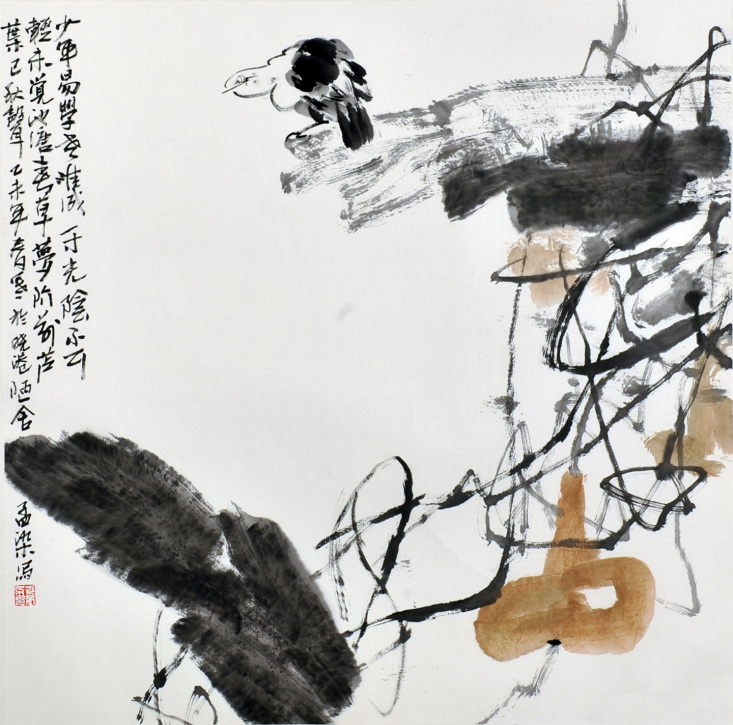 少年易學老难成一寸光陰不可
輕未覺池塘春草夢阶前梧
葉已秋聲 乙未年春寫於晓港陋舍
孟染写